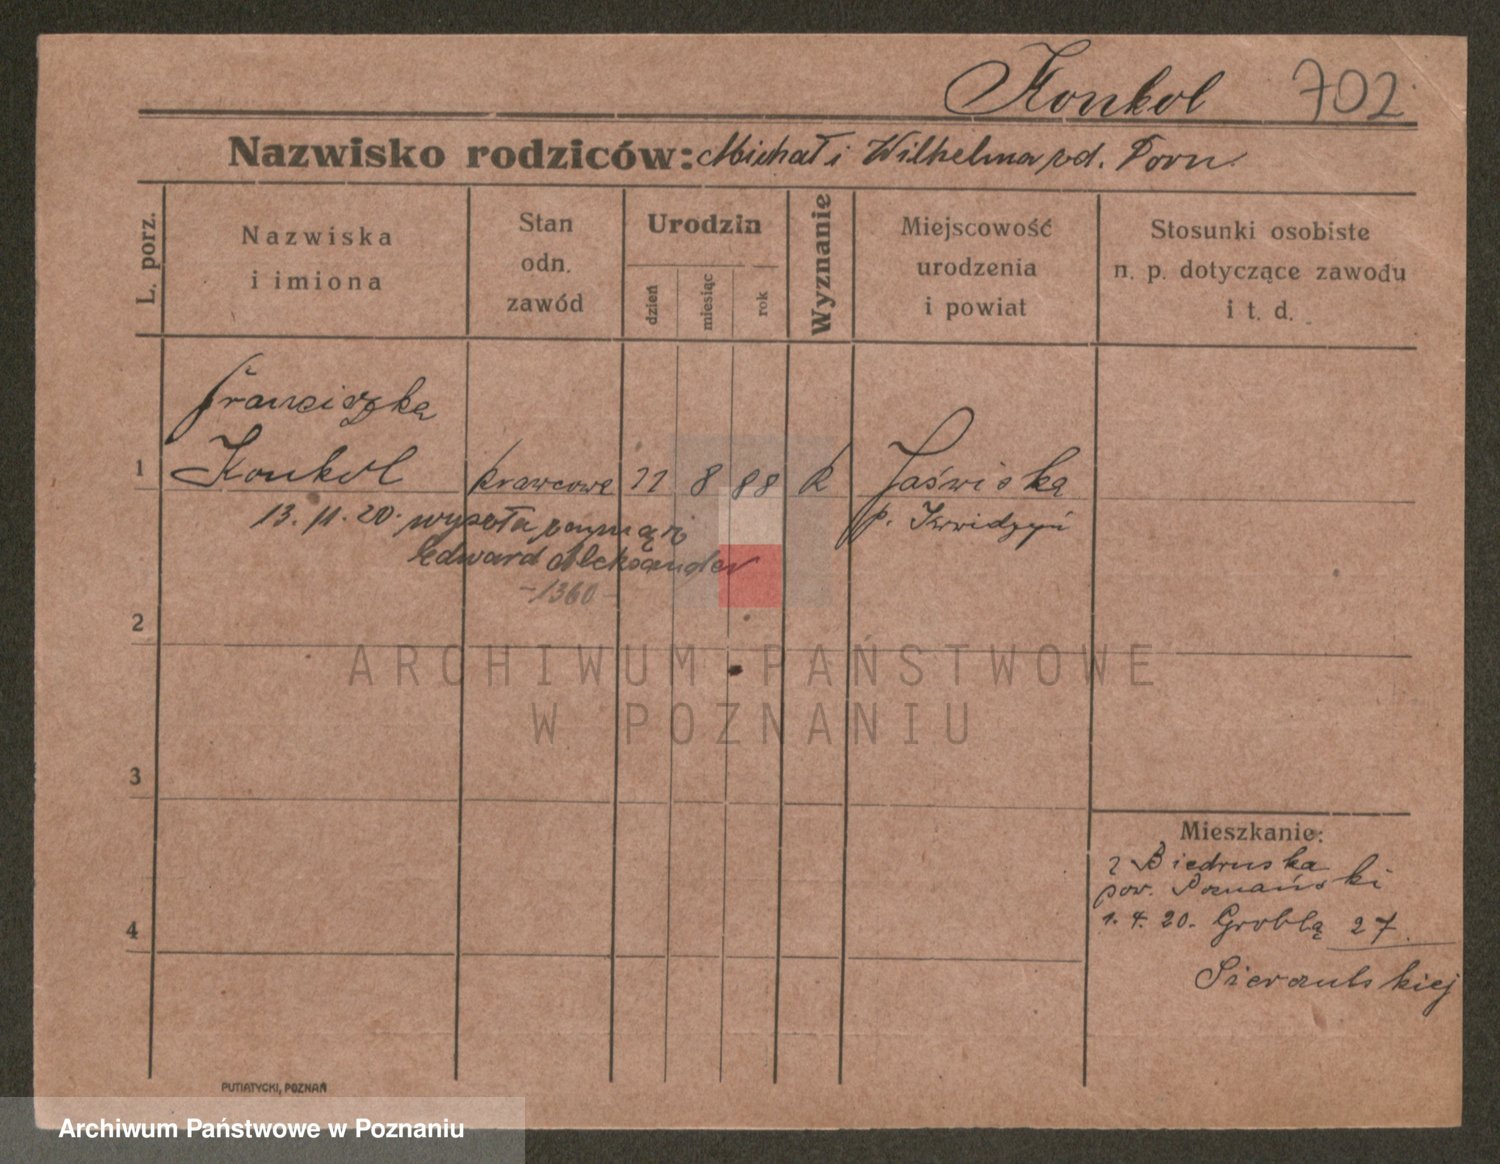 Konkol 702
Nazwisko rodziców: Michał i Wilhelma
L. porz.
Nazwiska
i imiona
Stan
odn.
zawód
Urodzin
dzień
miesiąc
rok
Wyznanie
Miejscowość
urodzenia
i powiat
Stosunki osobiste
n. p. dotyczące zawodu
i t. d.
Franciszka
1 Konkol krawcowa 8 88 k Jaświska
p. Kwidzyń
13. 11. 20. wyszła zamąż
Edward Aleksander
-1360-
2
3
4
Mieszkanie:
z Biedruska
pow. Poznański
1. 4. 20. Groblą 27
PUTIATYCKI, POZNAŃ
ARCHIWUM PAŃSTWOWE
W POZNANIU
Archiwum Państwowe w Poznaniu